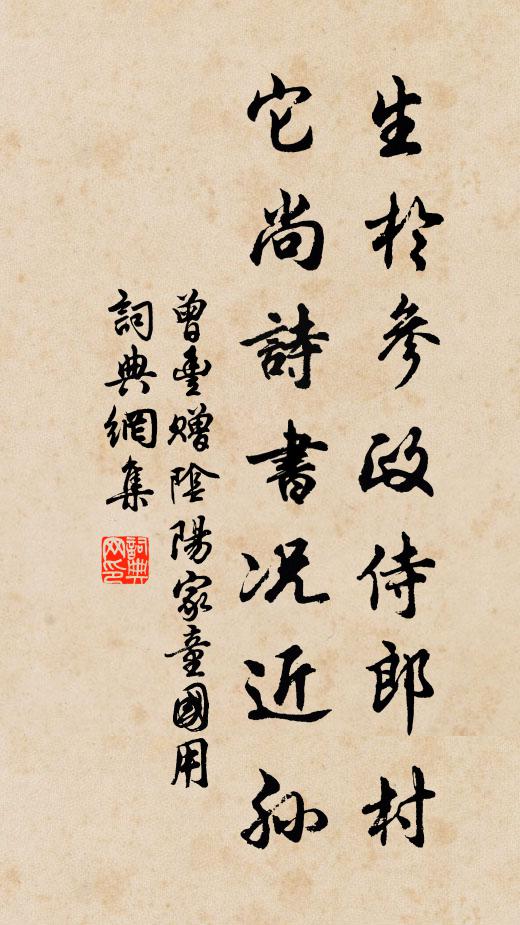 生於參政侍郎村
它尚詩書况近孫
曾豐贈陰陽家童國用
詞典網集
詞典網印